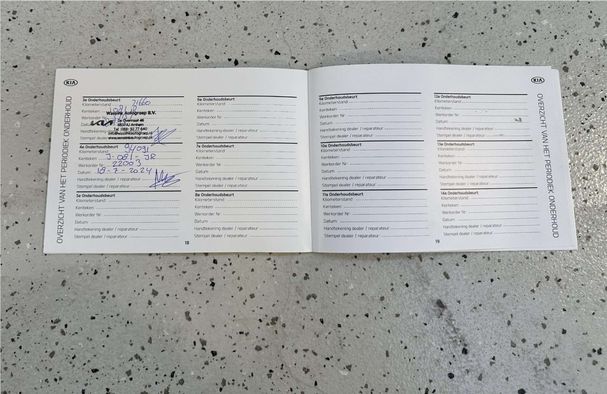 KIA
OVERZICHT VAN HET PERIODIEK ONDERHOUD
3e Onderhoudsbeurt
Kilometerstand
Wassink Autogroep B.V.
KIA
4e Onderhoudsbeurt
Kilometerstand
Kenteken J-081-JR
Werkorder Nr 22003
Datum 18-7-2024
Handtekening dealer / reparateur
Stempel dealer / reparateur
5e Onderhoudsbeurt
Kilometerstand
Kenteken
Werkorder Nr
Datum
Handtekening dealer / reparateur
Stempel dealer / reparateur
6e Onderhoudsbeurt
Kilometerstand
Kenteken
Werkorder Nr
Datum
Handtekening dealer / reparateur
Stempel dealer / reparateur
7e Onderhoudsbeurt
Kilometerstand
Kenteken
Werkorder Nr
Datum
Handtekening dealer / reparateur
Stempel dealer / reparateur
8e Onderhoudsbeurt
Kilometerstand
Kenteken
Werkorder Nr
Datum
Handtekening dealer / reparateur
Stempel dealer / reparateur
18
9e Onderhoudsbeurt
Kilometerstand
Kenteken
Werkorder Nr
Datum
Handtekening dealer / reparateur
Stempel dealer / reparateur
10e Onderhoudsbeurt
Kilometerstand
Kenteken
Werkorder Nr
Datum
Handtekening dealer / reparateur
Stempel dealer / reparateur
11e Onderhoudsbeurt
Kilometerstand
Kenteken
Werkorder Nr
Datum
Handtekening dealer / reparateur
Stempel dealer / reparateur
12e Onderhoudsbeurt
Kilometerstand
Kenteken
Werkorder Nr
Datum
Handtekening dealer / reparateur
Stempel dealer / reparateur
13e Onderhoudsbeurt
Kilometerstand
Kenteken
Werkorder Nr
Datum
Handtekening dealer / reparateur
Stempel dealer / reparateur
14e Onderhoudsbeurt
Kilometerstand
Kenteken
Werkorder Nr
Datum
Handtekening dealer / reparateur
Stempel dealer / reparateur
19
KIA
OVERZICHT VAN HET PERIODIEK ONDERHOUD